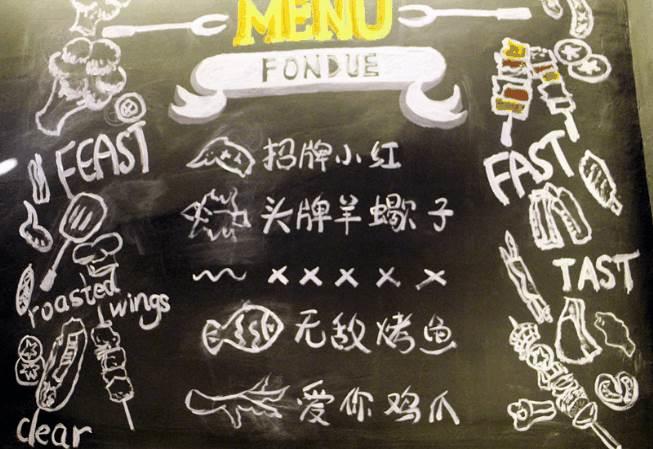 MENU
FONDUE
FEAST
FAST
招牌小红
头牌羊蝎子
×××××
TAST
roasted wings
无敌烤鱼
爱你鸡爪
clear